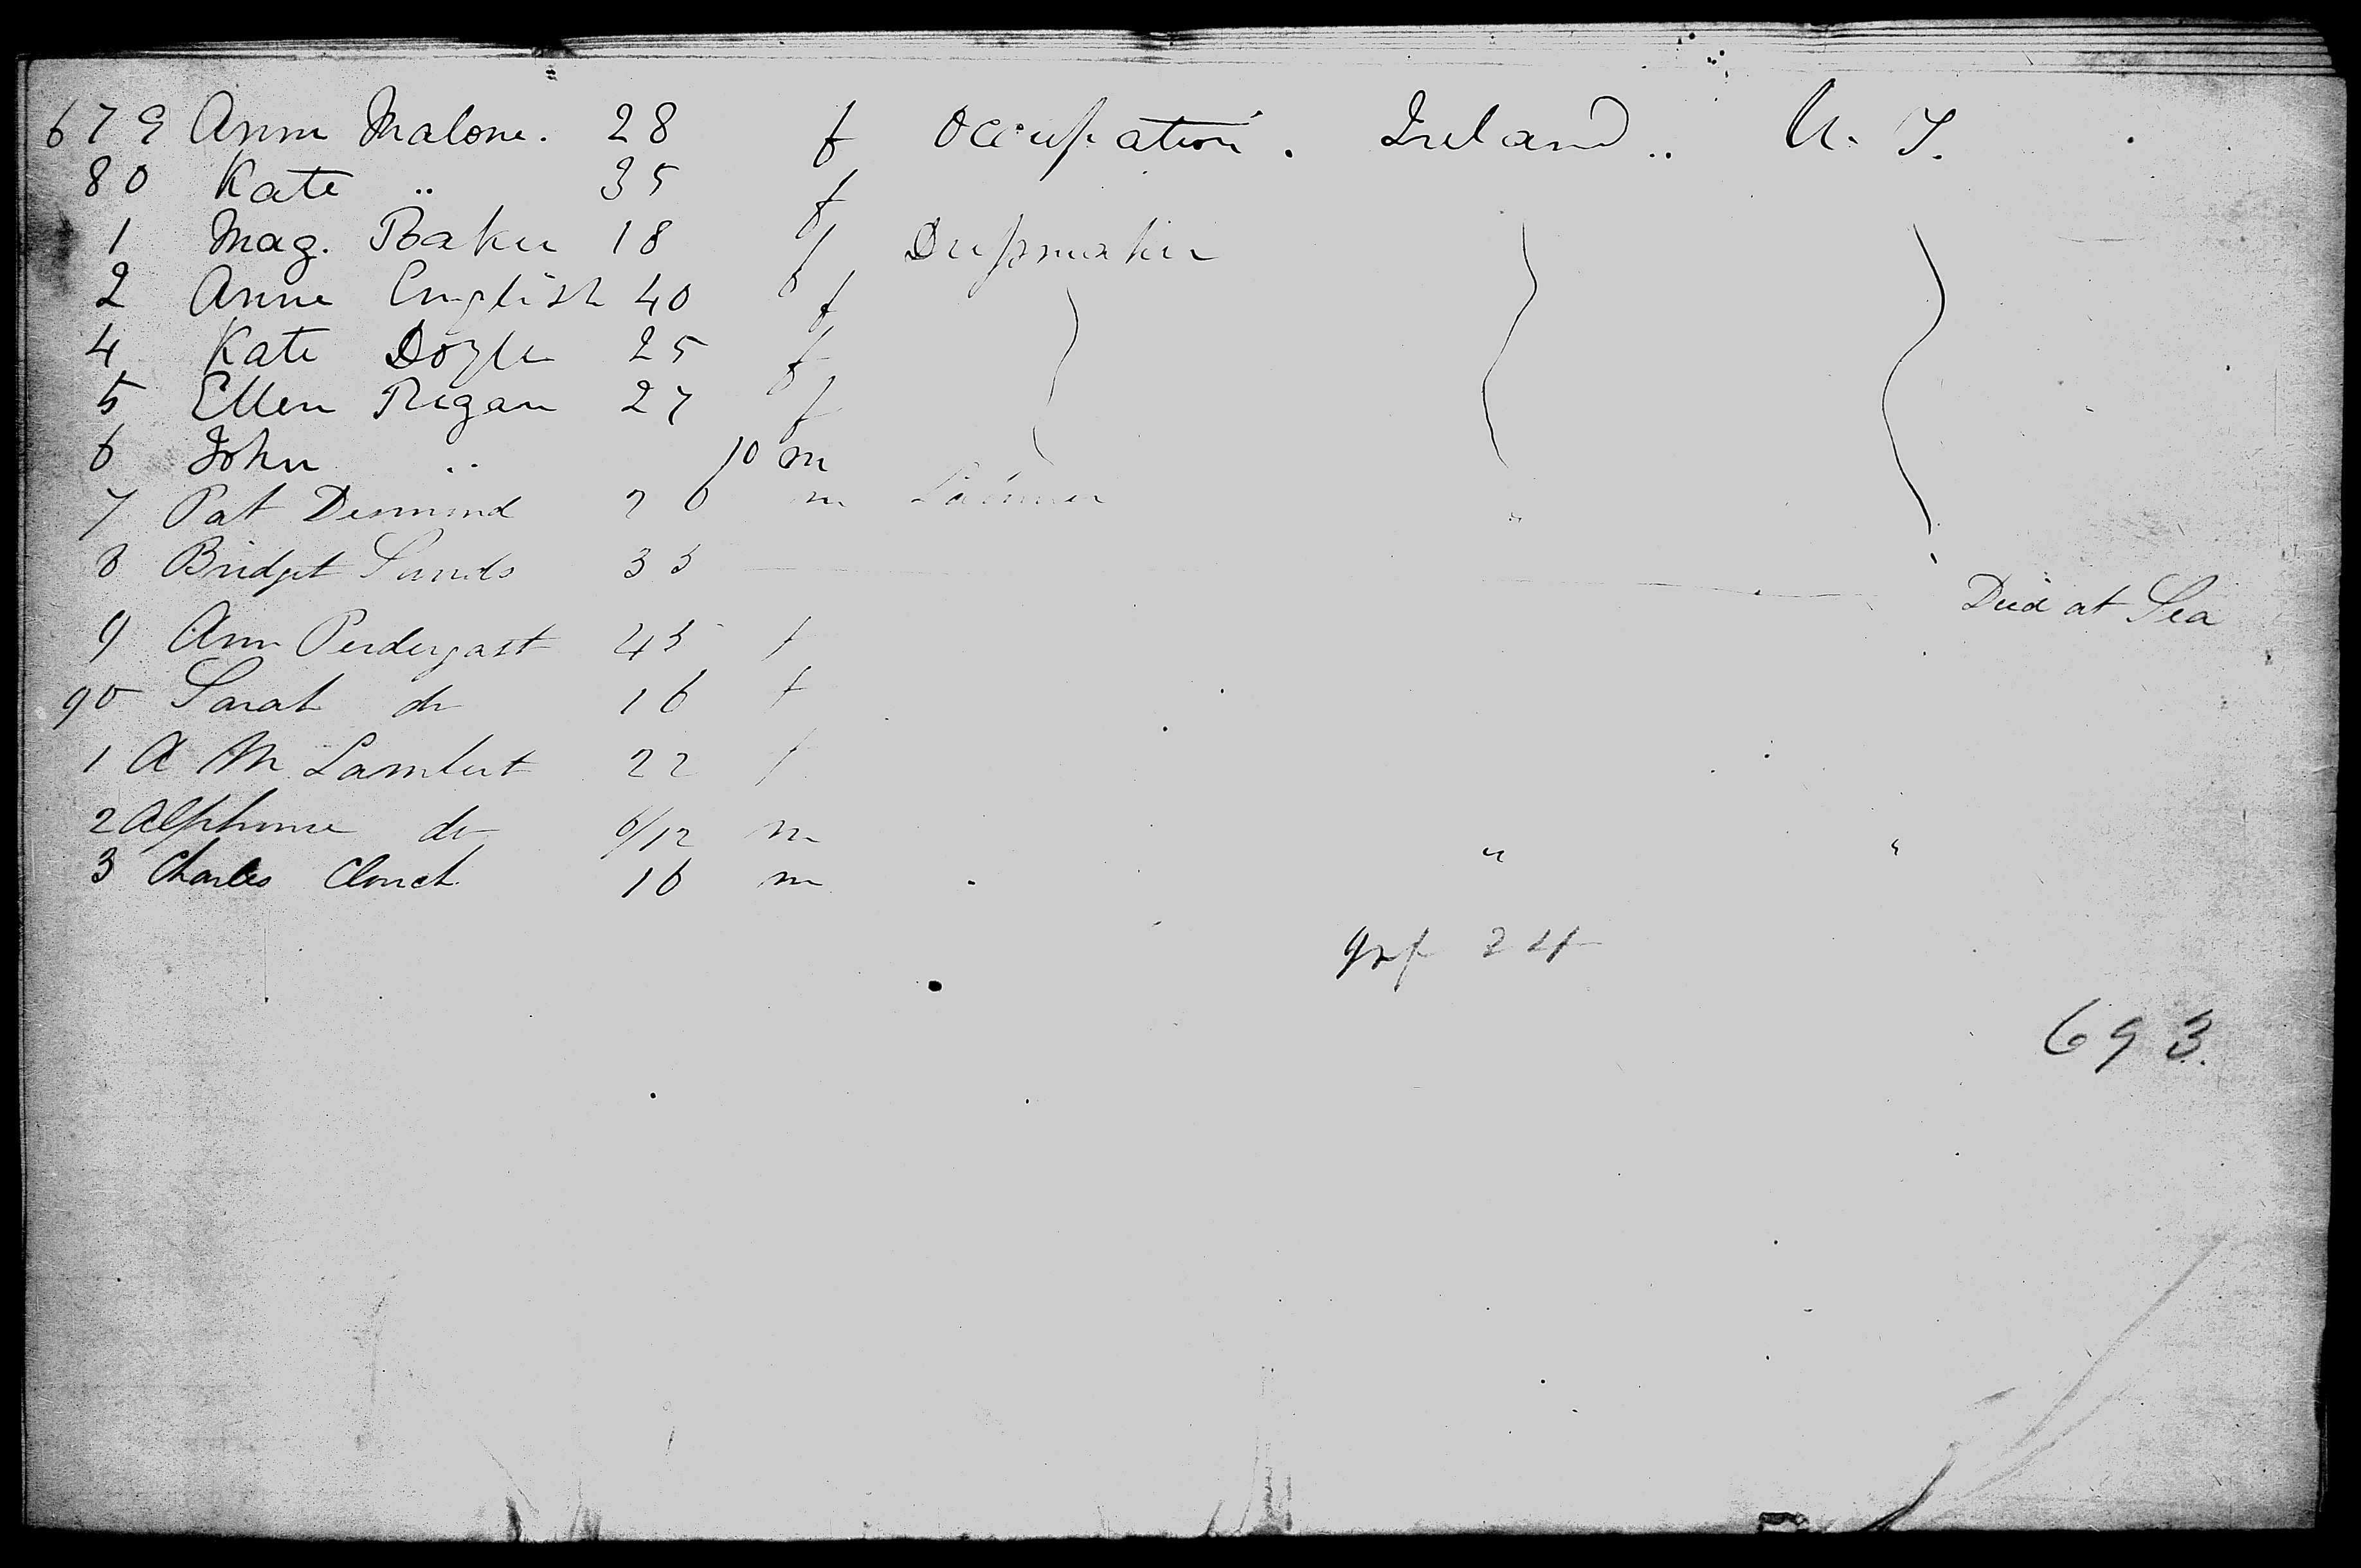 679 Anne Malone. 28 f Occupation. Ireland.. U. S.
80 Kate " 35 f
1 Mag. Baker 18 f Dressmaker
2 Anne English 40 f
4 Kate Doyle 25 f
5 Ellen Regan 27 f
6 John " 10 m
7 Pat Desmond 26 m Labourer "
8 Bridget Sands 35 Died at Sea
9 Ann Pendergast 45 f
90 Sarah do 16 f
1 A M Lambert 22 f
2 Alphonse do 6/12 m " "
3 Charles 16 m
24
693.